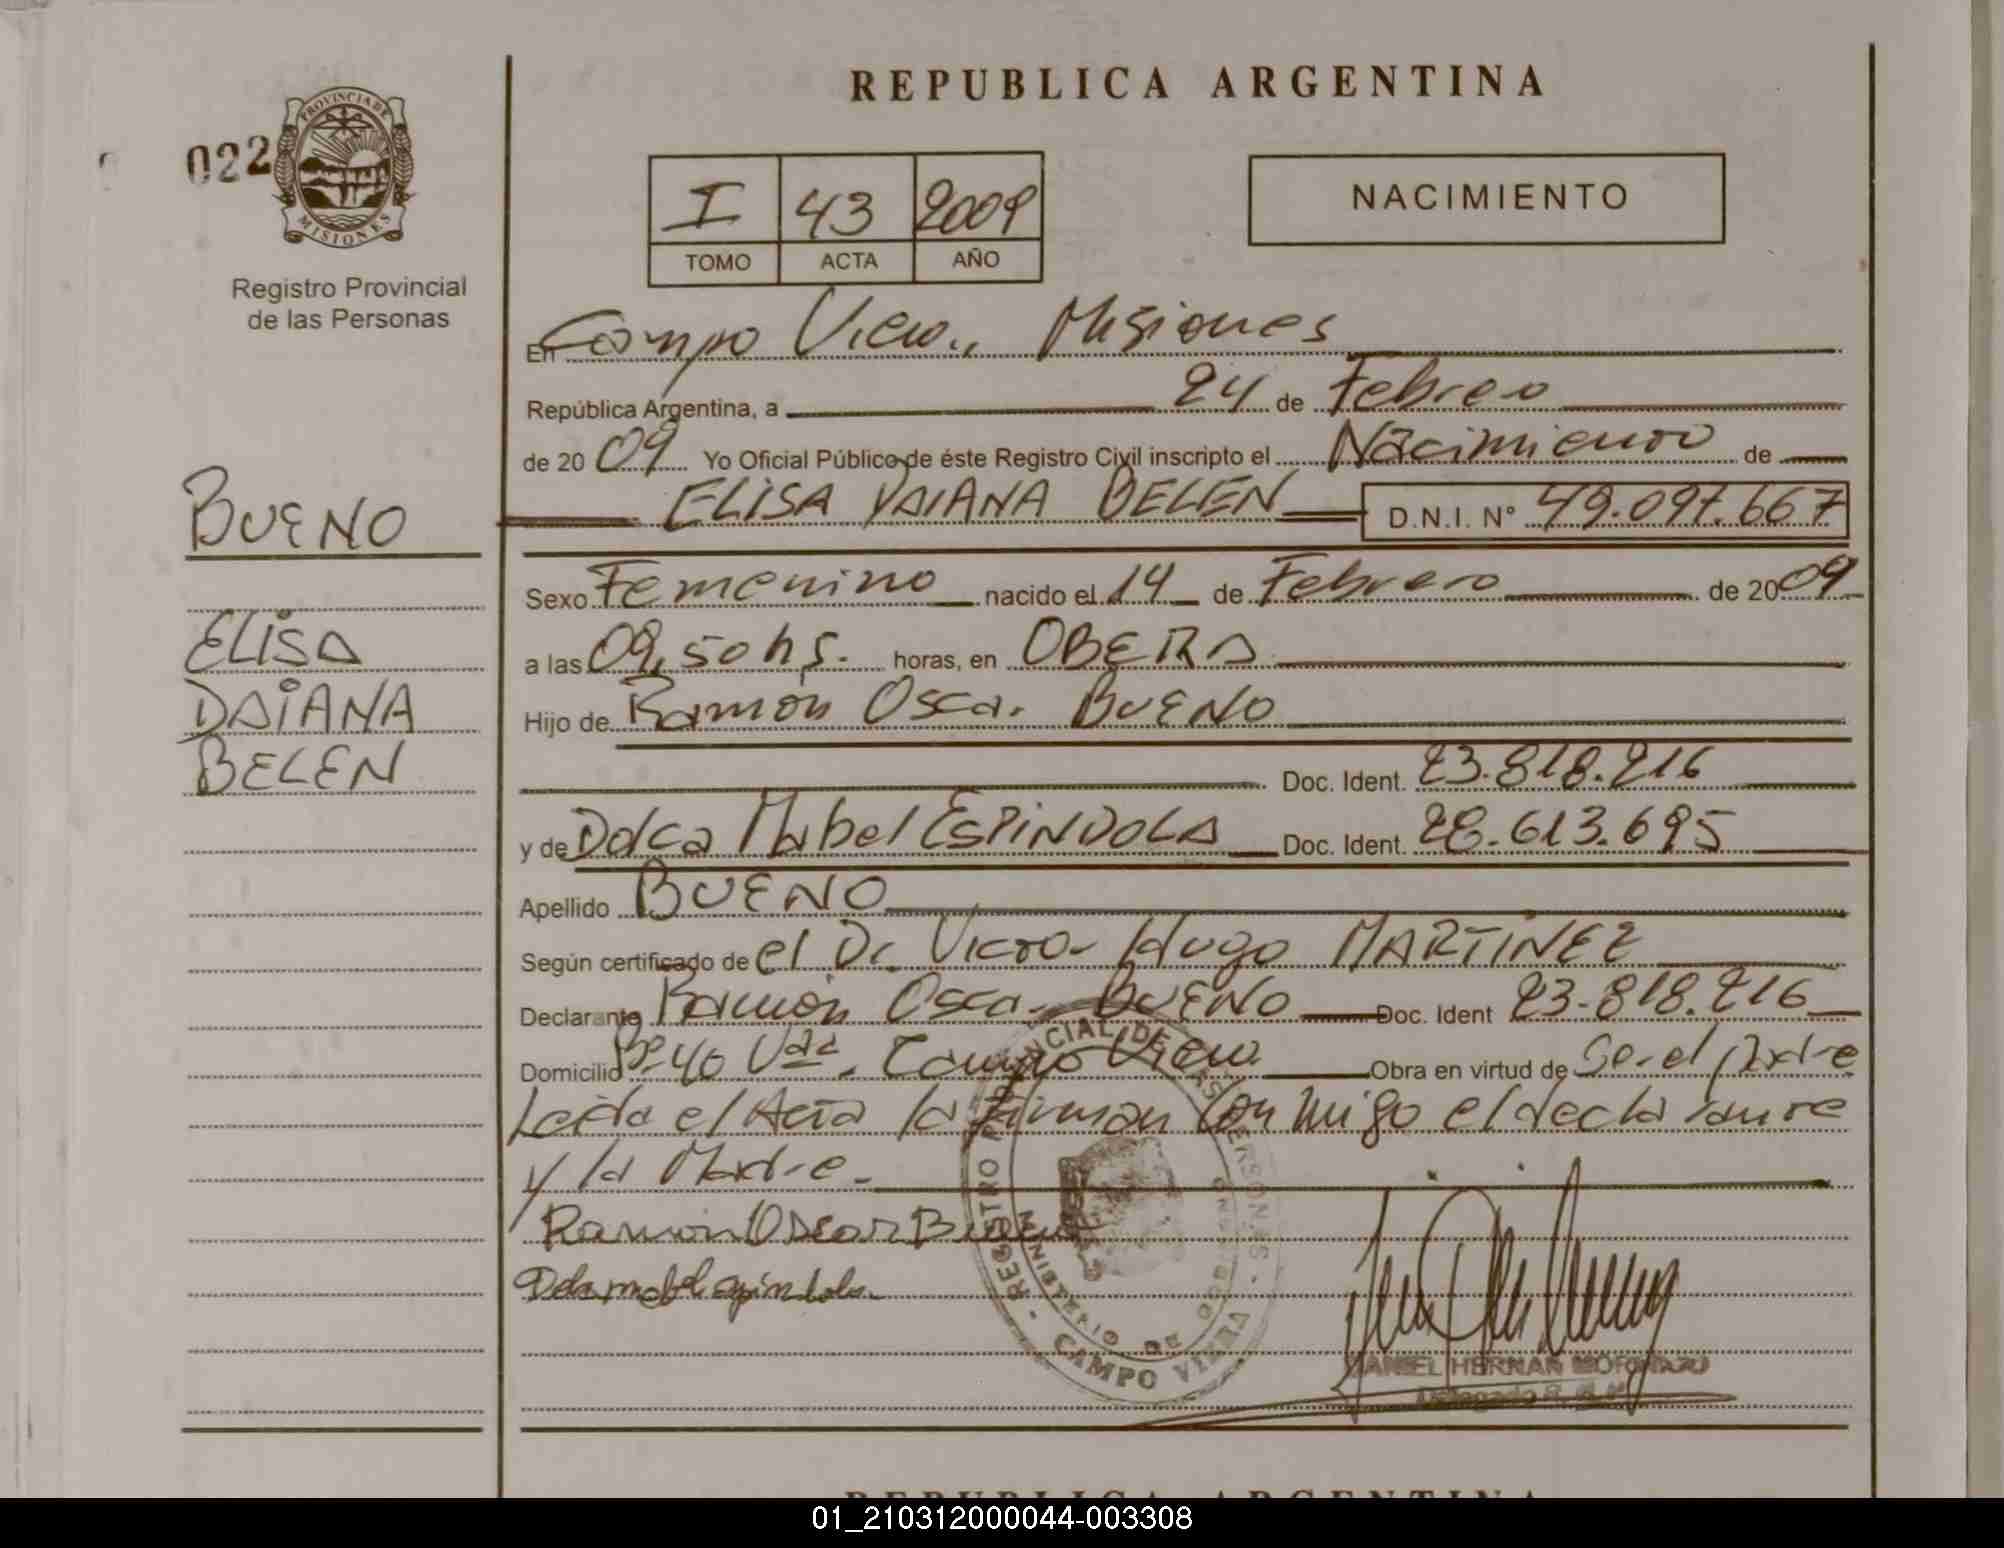 REPUBLICA ARGENTINA
022
PROVINCIA DE
MISIONES
Registro Provincial
de las Personas
I 43 2009
TOMO ACTA AÑO
NACIMIENTO
En Campo Viera, Misiones
República Argentina, a 24 de Febrero
de 2009 Yo Oficial Público de éste Registro Civil inscripto el Nacimiento de
ELISA DAIANA BELEN D.N.I. N° 49.097.667
BUENO
ELISA
DAIANA
BELEN
Sexo Femenino nacido el 14 de Febrero de 2009
a las 09,50 hs. horas, en OBERA
Hijo de Ramón Oscar BUENO
Doc. Ident. 23.818.216
y de Mabel ESPINDOLA Doc. Ident. 28.613.695
Apellido BUENO
Según certificado de el Dr. Victor Hugo MARTINEZ
Declarante Ramón Oscar BUENO Doc. Ident 23.818.216
Domicilio Bº 40 Campo Viera Obra en virtud de Ser el padre
Leída el Acta la firman conmigo el declarante
y la Madre.
Ramon Oscar Bueno
REGISTRO PROVINCIAL DE LAS PERSONAS - CAMPO VIERA -
MINISTERIO DE GOBIERNO
REPUBLICA ARGENTINA
01_210312000044-003308